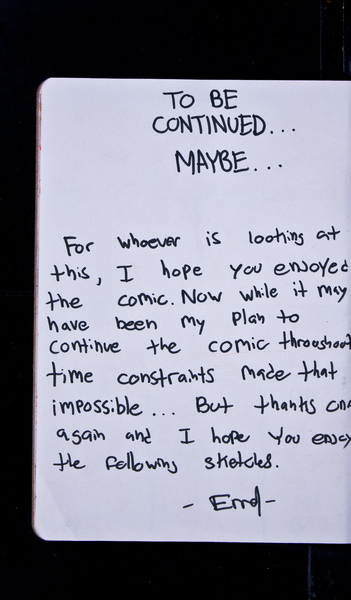 TO BE
CONTINUED...
MAYBE...
For whoever is looking at
this, I hope you enjoyed
the comic. Now while it may
have been my plan to
continue the comic throughout
time constraints made that
impossible... But thanks
again and I hope you enjoy
the following sketches.